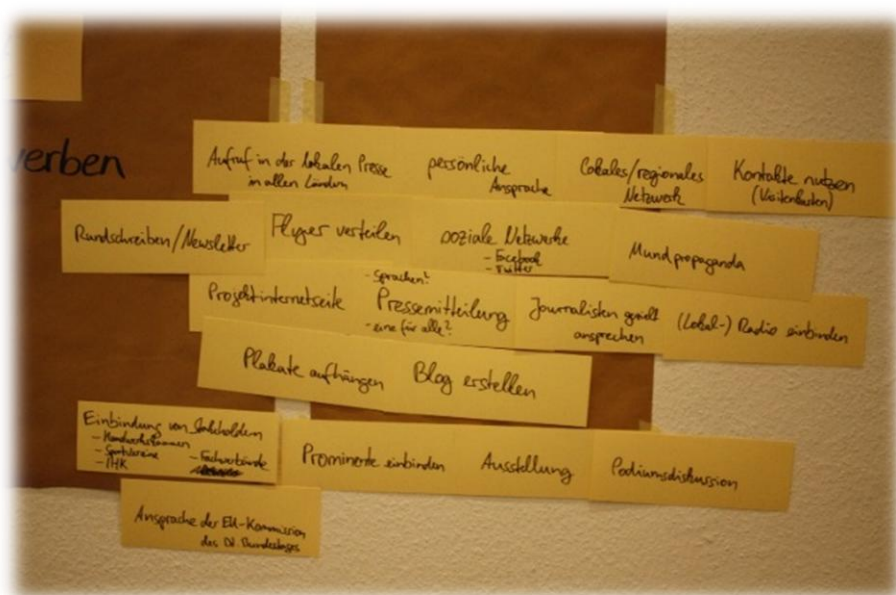 erben
Aufruf in der lokalen Presse
in allen Ländern
persönliche
Ansprache
Lokales/regionales
Netzwerk
Kontakte nutzen
(Visitenkarten)
Rundschreiben/Newsletter
Flyer verteilen
soziale Netzwerke
- Facebook
- Twitter
Mundpropaganda
Projektinternetseite
- Sprachen?
Pressemitteilung
- eine für alle?
Journalisten gezielt
ansprechen
(Lokal-) Radio einbinden
Plakate aufhängen
Blog erstellen
Einbindung von Stakeholdern
- Handwerkskammern
- Sportvereine
- IHK
- Fachverbände
Prominente einbinden
Ausstellung
Podiumsdiskussion
Ansprache der EU-Kommission
des Dt. Bundestages